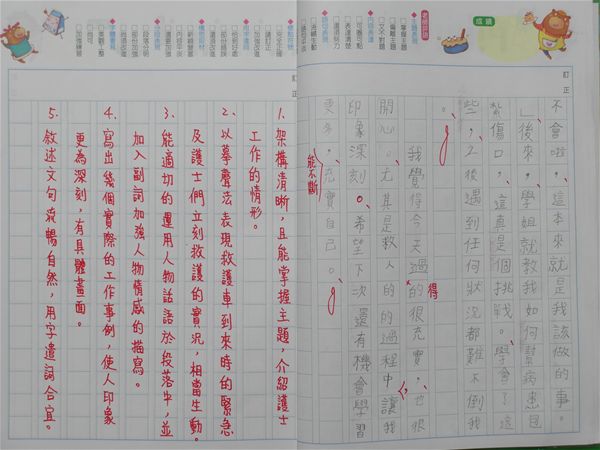 成績
訂正
不會啦，這本來就是我該做的事。
」後來，學姐就教我如何病患包
紮傷口，這真是個挑戰。學會了這
些，之後遇到任何狀況都難不倒我
。
我覺得今天過的很充實，也很
得
開心。尤其是救人的的過程中讓我
印象深刻。希望下次還有機會學習
更多，充實自己。
能不斷
訂正
1. 架構清晰，且能掌握主題，介紹護士
工作的情形。
2. 以摹聲法表現救護車到來時的緊急
及護士們立刻救護的實況，相當生動。
3. 能適切的運用人物話語於段落中，並
加入副詞加強人物情感的描寫。
4. 寫出幾個實際的工作事例，使人印象
更為深刻，有具體畫面。
5. 敘述文句流暢自然，用字遣詞合宜。